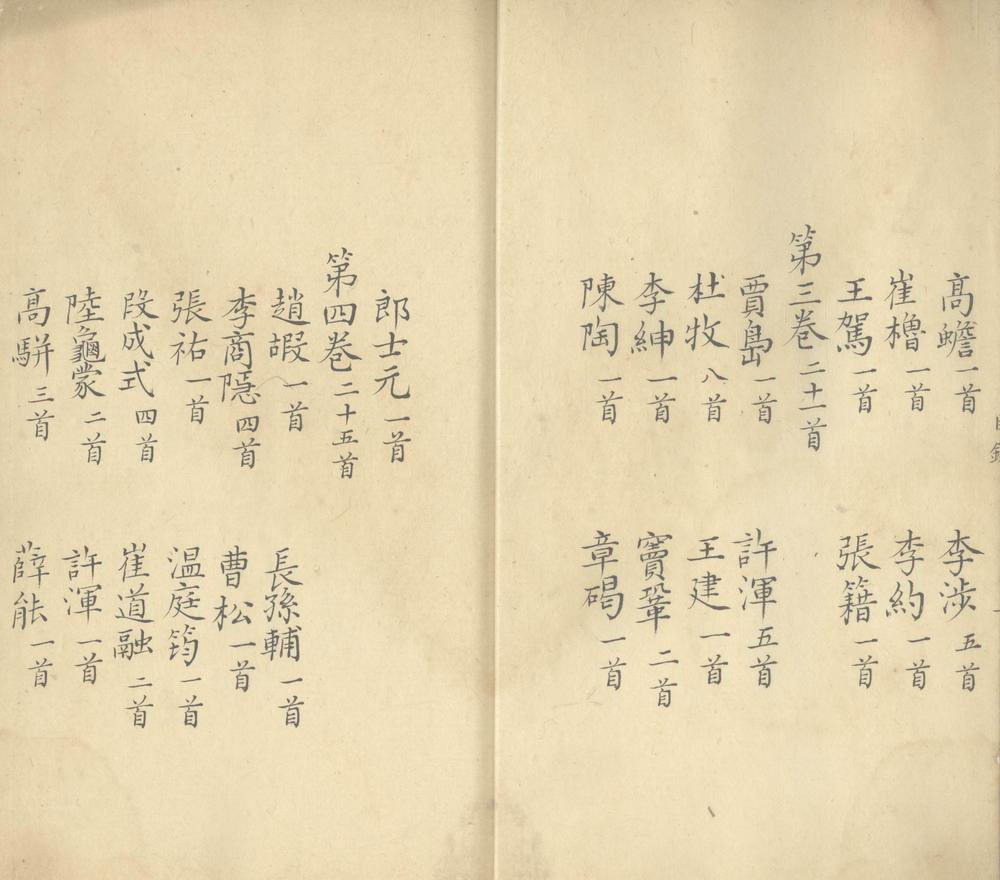 目錄
高蟾一首　李涉五首
崔櫓一首　李約一首
王駕一首　張籍一首
第三巻二十一首
賈島一首　許渾五首
杜牧八首　王建一首
李紳一首　竇鞏二首
陳陶一首　章碣一首
郎士元一首
第四巻二十五首
趙嘏一首　長孫輔一首
李商隱四首　曹松一首
張祐一首　温庭筠一首
段成式四首　崔道融二首
陸龜蒙二首　許渾一首
高駢三首　薛能一首